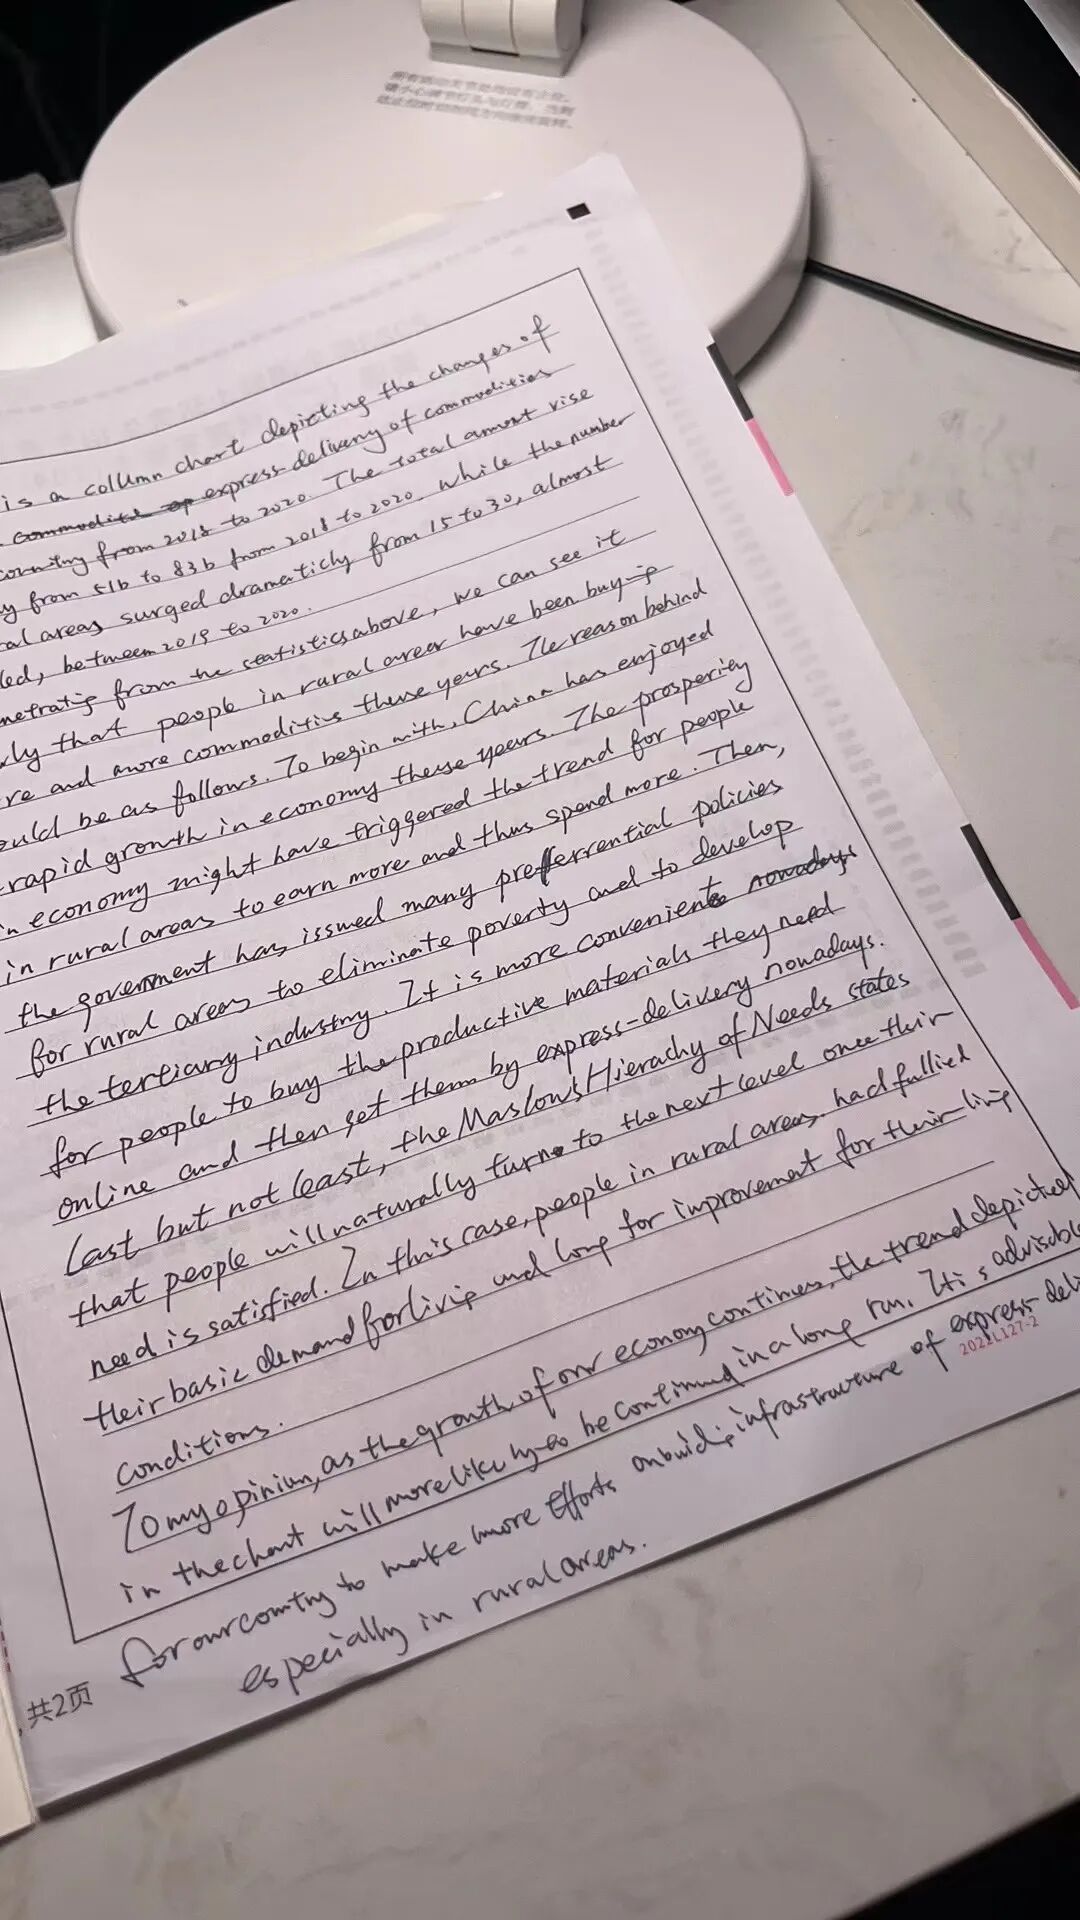 is a column chart depicting the changes of
express-delivery of commodities
country from 2018 to 2020. The total amout rise
y from 51b to 83b from 2018 to 2020, while the number
ral areas surged dramaticly from 15 to 30, almost
led, between 2019 to 2020.
netratig from the statistics above, we can see it
rly that people in rural areas have been buying
re and more commodities these years. The reason behind
ould be as follows. To begin with, China has enjoyed
rapid growth in economy these years. The prosperity
in economy might have triggered the trend for people
in rural areas to earn more and thus spend more. Then,
the government has issued many preferrential policies
for rural areas to eliminate poverty and to develop
the tertiary industry. It is more convenient nowadays
for people to buy the productive materials they need
online and then get them by express-delivery nowadays.
Last but not least, the Maslow's Hierachy of Needs states
that people will naturally turn to the next level once their
need is satisfied. In this case, people in rural areas had fullied
their basic demand for living and long for improvement for their living
conditions.
To my opinion, as the growth of our economy continues, the trend depicted
in the chart will more likely to be continued in a long run. It is advisable
for our country to make more efforts on buiding infrastructure of express-deli
especially in rural areas.
2022L127-2
,共2页